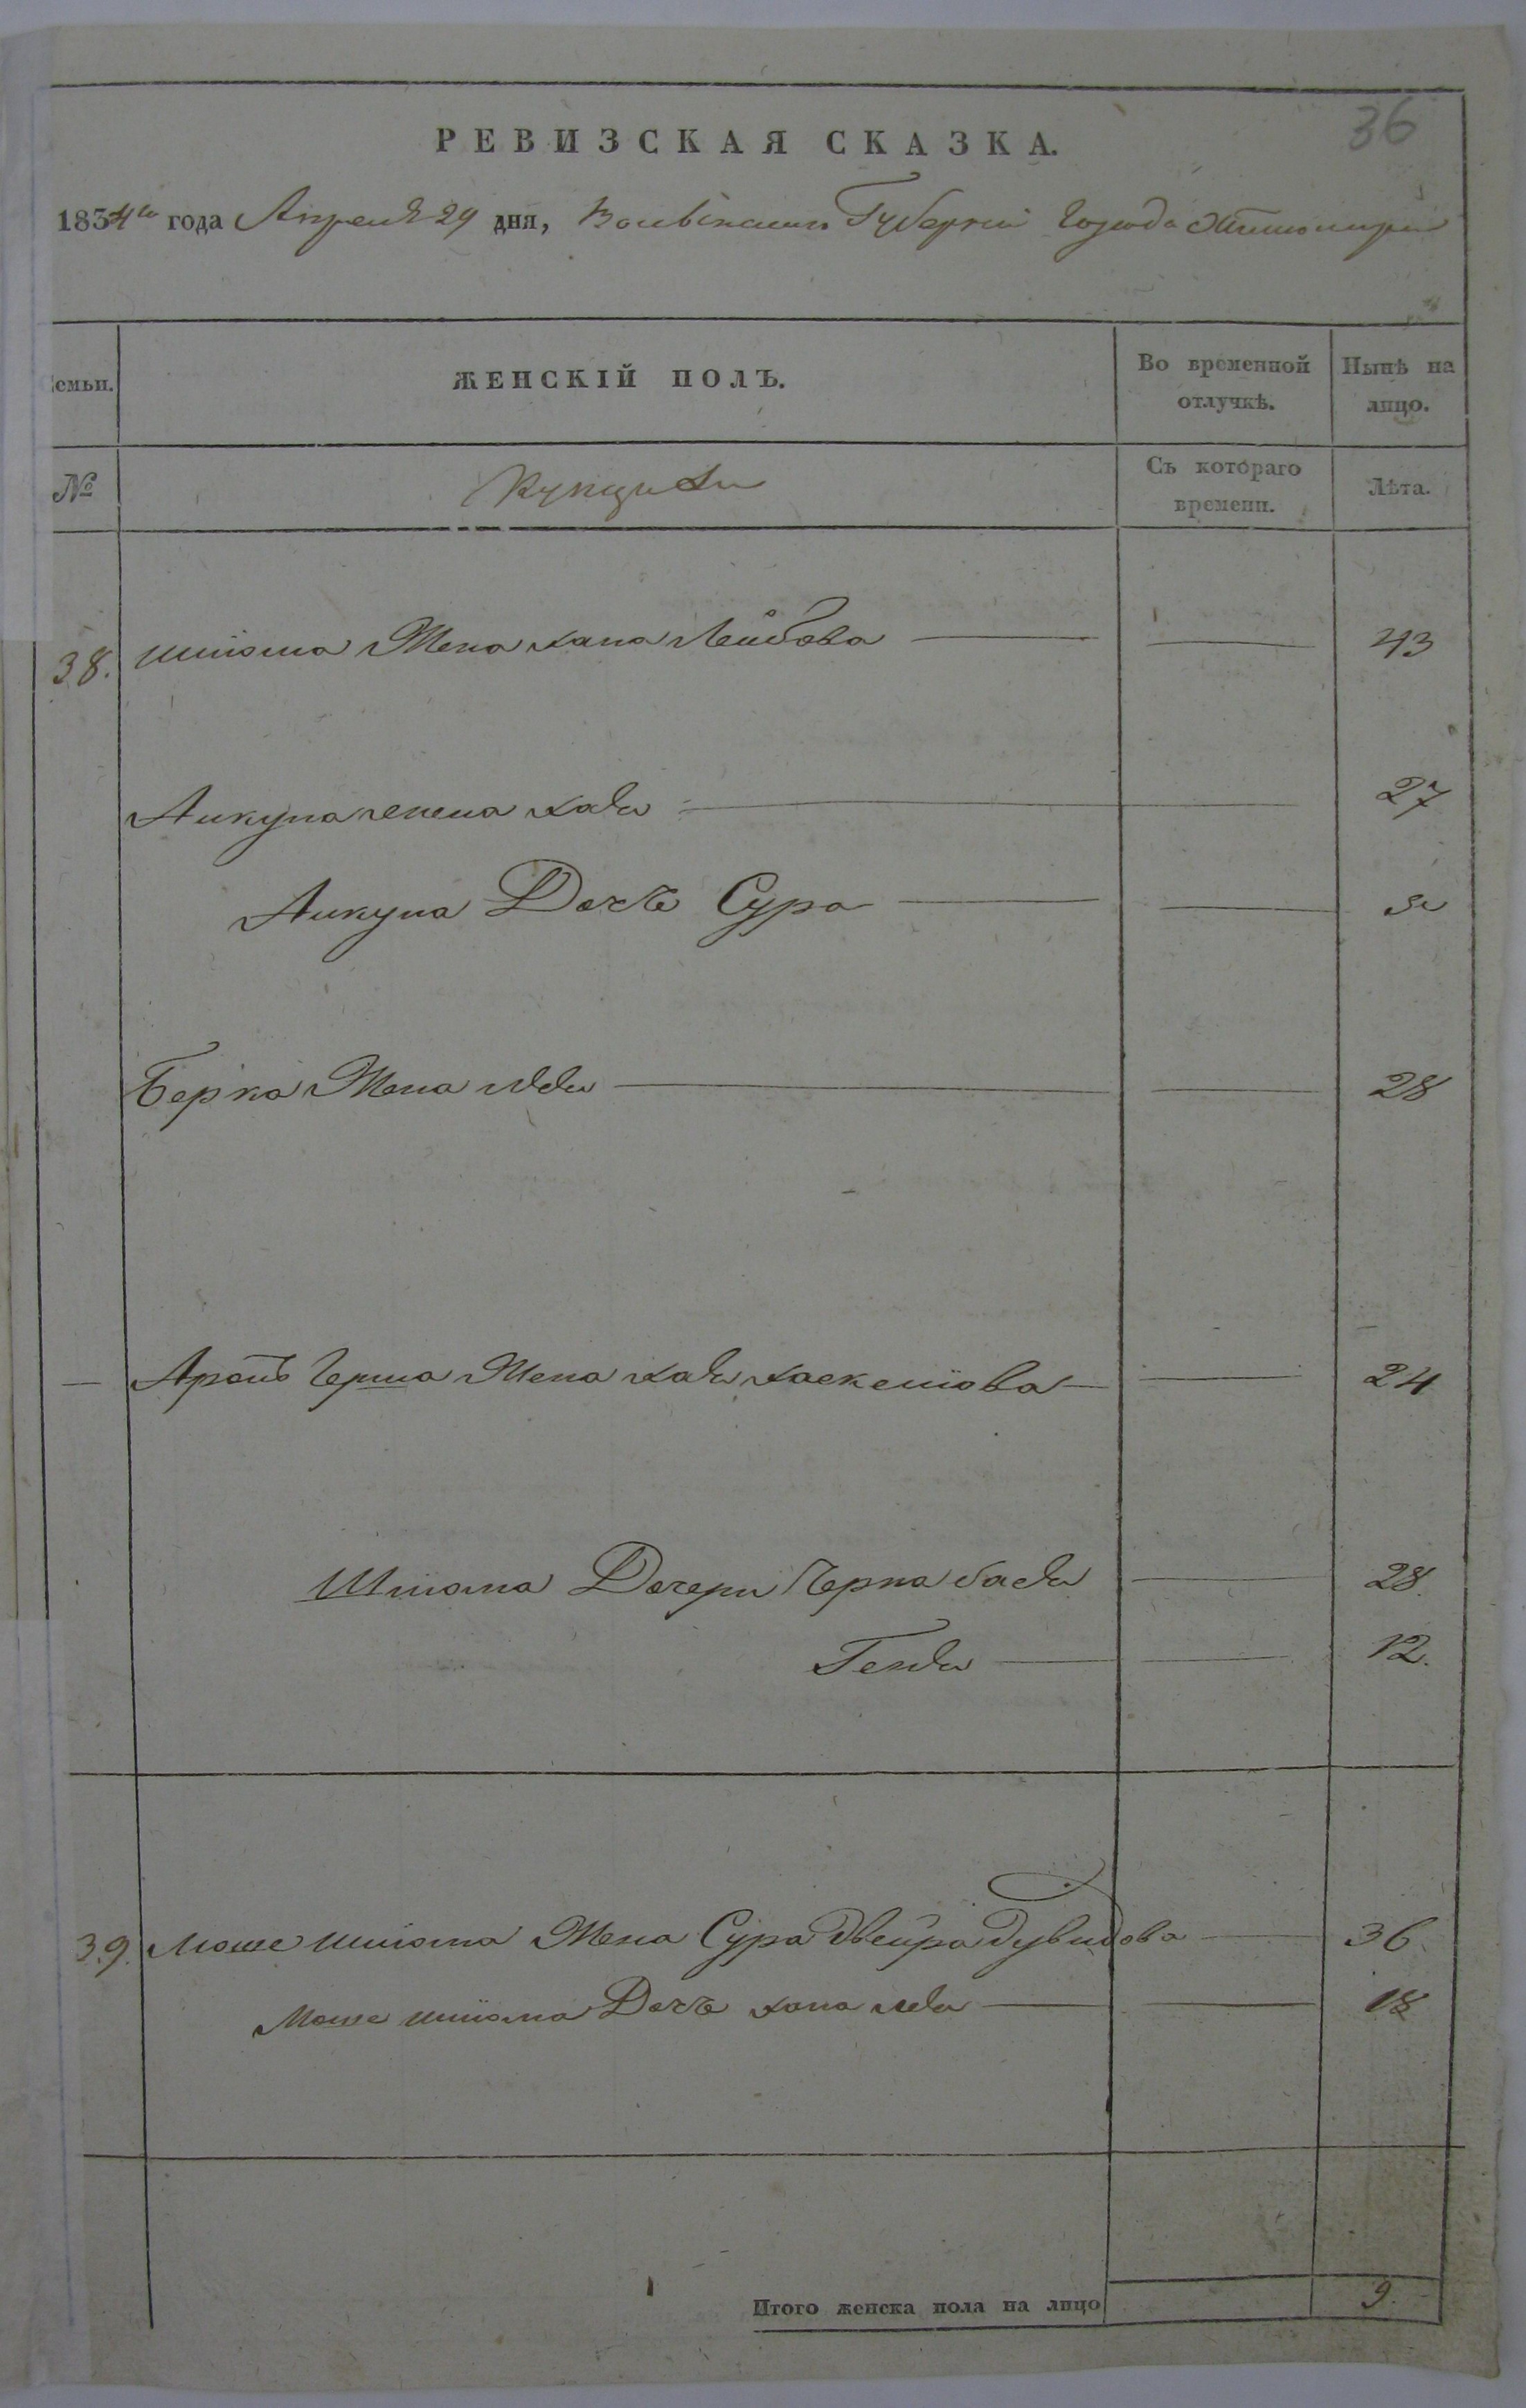 36
РЕВИЗСКАЯ СКАЗКА.
1834го года Апреля 29 дня, Волынской Губернии Города Житомира
Семьи.
ЖЕНСКІЙ ПОЛЪ.
Во временной отлучкѣ.
Нынѣ на лицо.
№
Купцы
Съ котораго времени.
Лѣта.
38. Шліома Жена хана Лейбова 43
жена хая 27
Дочь Сура
Берка Жена 28
Аронъ Герша Жена хая хаскелiова 24
Шліома Дочери бася 28
Геня 12.
39. Мошe шліома Жена Сура двейра дувидова 36
Мошe шліома Дочь хана лея 18
Итого женска пола на лицо 9.